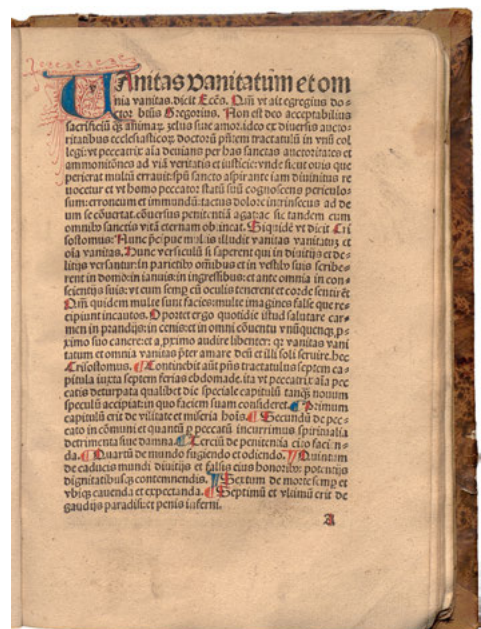 VAnitas vanitatum et om
nia vanitas.dicit Eccs. Qm̄ vt ait egregius do⸗
ctor btūs Gregorius. Non est deo acceptabilius
sacrificiū qʒ animaꝝ zelus siue amor.ideo ex diuersis aucto⸗
ritatibus ecclesiasticoꝝ doctorū pñtem tractatulū in vnū col
legi:vt peccatrix aīa deuians per has sanctas auctoritates et
ammonitōnes ad viā veritatis et iusticie:vnde sicut ouis que
perierat multū errauit:spū sancto aspirante iam diuinitus re
uocetur et vt homo peccator statū suū cognoscens periculo⸗
sum:erroneum et immundū:tactus dolore intrinsecus ad de
um se cōuertat.cōuersus penitentiā agat:ac sic tandem cum
omnibꝰ sanctis vitā eternam obtineat. Siquidē vt dicit Cri
sostomus: Nunc p̄cipue mūdis illudit vanitas vanitatuʒ et
oīa vanitas. Hunc versiculū si saperent qui in diuitijs et de⸗
litijs versantur:in parietibꝰ oībus et in vestibꝰ suis scribe⸗
rent in domo:in ianuis:in ingressibus:et ante omnia in con⸗
scientijs suis:vt eum semp̄ cū oculis tenerent et corde sentirēt
Qm̄ quidem multe sunt facies:multe imagines false que re⸗
cipiunt incautos. Oportet ergo quotidie istud salutare car⸗
men in prandijs:in cenis:et in omni cōuentu vnūquenqʒ p⸗
ximo suo canere:et a p̱ximo audire libenter: qꝛ vanitas vani
tatum et omnia vanitas p̄ter amare deū et illi soli seruire.hec
Crisostomus. ¶ Continebit aūt pñs tractatulus septem ca⸗
pitula iuxta septem ferias ebdomade.ita vt peccatrix aīa pec
catis deturpata qualibet die speciale capitulū tanqʒ nouum
speculū accipiat:in quo faciem suam consideret. ¶ Primum
capitulū erit de vilitate et miseria hoīs. ¶ Secundū de pec⸗
cato in cōmuni et quantū p̱ peccatū incurrimus spiritualia
detrimenta siue damna. ¶ Terciū de penitencia cito facien⸗
da. ¶ Quartū de mundo fugiendo et odiendo. ¶ Quintum
de caducis mundi diuitijs et falsis eius honoribꝰ: potentijs
dignitatibusqʒ contemnendis. ¶ Sextum de morte semp̄ et
vbiqʒ cauenda et expectanda. ¶ Septimū et vltimū erit de
gaudijs paradisi:et penis inferni.
A